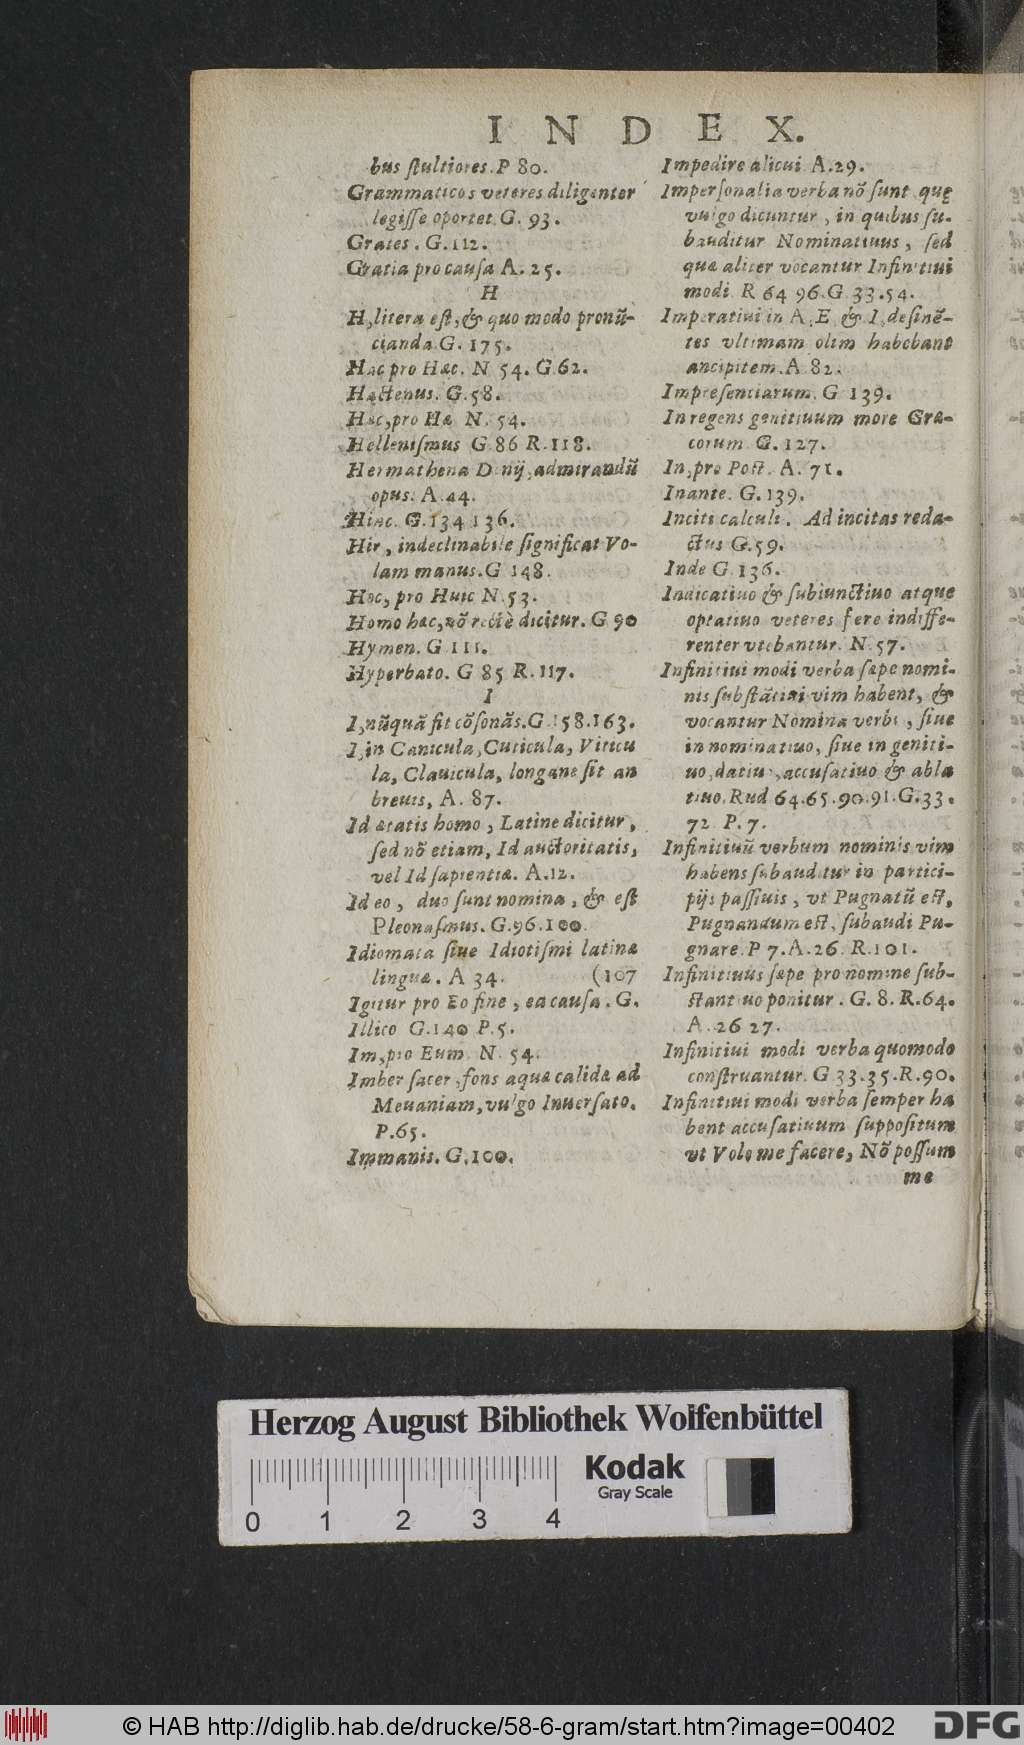 INDEX.
bus ſtultiores. P 80.
Grammaticos veteres diligenter
legiſſe oportet. G. 93.
Grates. G. 112.
Gratia pro cauſa A. 25.
H
H, litera eſt, & quo modo pronũ-
cianda. G. 175.
Hac pro Hæc. N 54. G. 62.
Hactenus. G. 58.
Hæc, pro Hæ N. 54.
Helleniſmus G. 86 R. 118.
Hermathena D. nij, admirandũ
opus. A. 44.
Hinc. G. 134 136.
Hir, indeclinabile ſignificat Vo-
lam manus. G 148.
Hoc, pro Huic N. 53.
Homo hæc, nõ rectè dicitur. G 90
Hymen. G 111.
Hyperbato. G 85 R. 117.
I
I, nũquã fit cõſonãs. G. 158. 163.
I, in Canicula, Cuticula, Viticu
la, Clauicula, longane ſit an
breuis, A. 87.
Id ætatis homo, Latine dicitur,
ſed nõ etiam, Id auctoritatis,
vel Id ſapientiæ. A. 12.
Ideo, duo ſunt nomina, & eſt
Pleonaſmus. G. 96. 100.
Idiomata ſiue Idiotiſmi latinæ
linguæ. A 34. (107
Igitur pro Eo fine, ea cauſa. G.
Illico G. 140 P. 5.
Im, pro Eum. N. 54.
Imber ſacer, fons aquæ calidæ ad
Meuaniam, vulgo Inuerſato.
P. 65.
Immanis. G. 100.
Impedire alicui A. 29.
Imperſonalia verba nõ ſunt quę
vulgo dicuntur, in quibus ſu-
bauditur Nominatiuus, ſed
quæ aliter vocantur Infinitiui
modi. R 64 96. G 33. 54.
Imperatiui in A, E, & I, deſinẽ-
tes vltimam olim habebant
ancipitem. A. 82.
Impreſentiarum. G 139.
In regens genitiuum more Græ-
corum. G. 127.
In, pro Poſt. A. 71.
Inante. G. 139.
Inciti calculi. Ad incitas reda-
ctus G. 59.
Inde G. 136.
Indicatiuo & ſubiunctiuo atque
optatiuo veteres fere indiffe-
renter vtebantur. N. 57.
Infinitiui modi verba ſæpe nomi-
nis ſubſtãtiui vim habent, &
vocantur Nomina verbi, ſiue
in nominatiuo, ſiue in geniti-
uo, datiuo, accuſatiuo & abla
tiuo. Rud 64. 65. 90. 91. G. 33.
72. P. 7.
Infinitiuũ verbum nominis vim
habens ſubauditur in partici-
pijs paſſiuis, vt Pugnatũ eſt,
Pugnandum eſt, ſubaudi Pu-
gnare. P 7. A. 26. R. 101.
Infinitiuus ſæpe pro nomine ſub-
ſtantiuo ponitur. G. 8. R. 64.
A. 26 27.
Infinitiui modi verba quomodo
conſtruantur. G 33. 35. R. 90.
Infinitiui modi verba ſemper ha
bent accuſatiuum ſuppoſitum
vt Volo me facere, Nõ poſſum
me
Herzog August Bibliothek Wolfenbüttel
Kodak
Gray Scale
0 1 2 3 4
© HAB http://diglib.hab.de/drucke/58-6-gram/start.htm?image=00402
DFG